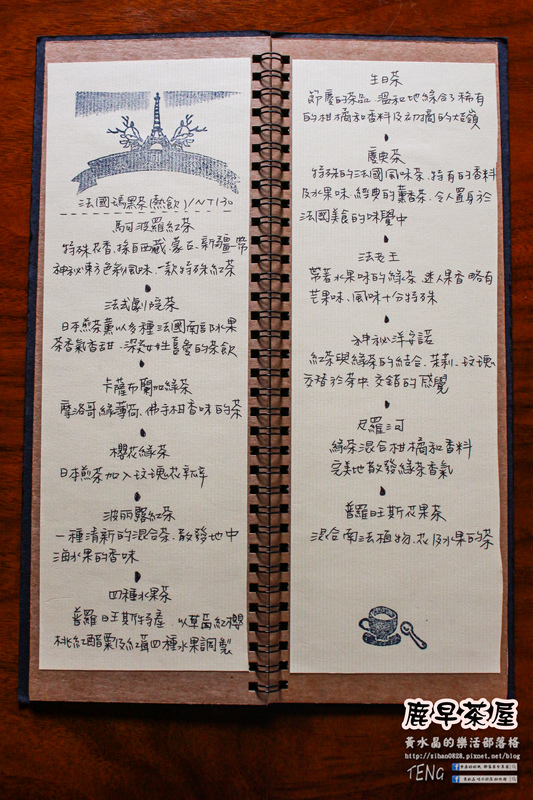 法國瑪黑茶(熱飲)/NT130
馬可波羅紅茶
特殊花香,採自西藏、蒙古、新疆,帶
神祕東方色彩風味,一款特殊紅茶
法式劇院茶
日本煎茶薰以多種法國南部水果
茶香氣香甜,深受女性喜愛的茶飲
卡薩布蘭加綠茶
摩洛哥綠薄荷、佛手柑香味的茶
櫻花綠茶
日本煎茶加入玫瑰花瓣
波麗露紅茶
一種清新的混合茶,散發地中
海水果的香味
四種水果茶
普羅旺斯特產,以草莓紅櫻
桃紅醋栗及紅莓四種水果調製
生日茶
節慶的茶品,溫和地綜合了稀有
的柑橘和香料及初摘的大吉嶺
慶典茶
特殊的法國風味茶,特有的香料
及水果味,經典的薰香茶,令人置身於
法國美食的味覺中
法老王
帶著水果味的綠茶,迷人果香略有
芒果味、風味十分特殊
神祕淨安諾
紅茶與綠茶的結合、茉莉、玫瑰
交積於茶中,交錯的感覺
尼羅河
綠茶混合柑橘和香料
完美地散發綠茶香氣
普羅旺斯花果茶
混合南法植物、花及水果的茶
鹿早茶屋
黃水晶的樂活部落格
http://sihao0828.pixnet.net/blog
TENG